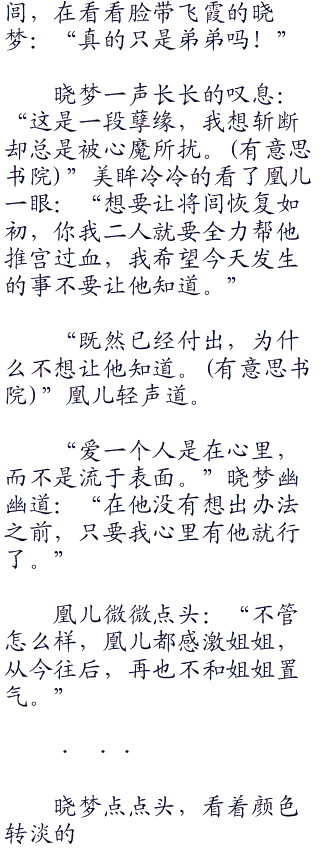 间，在看看脸带飞霞的晓
梦：“真的只是弟弟吗！”
晓梦一声长长的叹息：
“这是一段孽缘，我想斩断
却总是被心魔所扰。(有意思
书院)”美眸冷冷的看了凰儿
一眼：“想要让将闾恢复如
初，你我二人就要全力帮他
推宫过血，我希望今天发生
的事不要让他知道。”
“既然已经付出，为什
么不想让他知道。(有意思书
院)”凰儿轻声道。
“爱一个人是在心里，
而不是流于表面。”晓梦幽
幽道：“在他没有想出办法
之前，只要我心里有他就行
了。”
凰儿微微点头：“不管
怎么样，凰儿都感激姐姐，
从今往后，再也不和姐姐置
气。”
. . .
晓梦点点头，看着颜色
转淡的